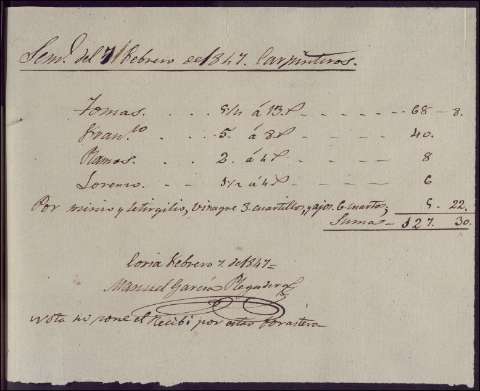 Sem.ª del 7 Febrero de 1847. Carpinteros.
Tomas. . . . 5 1/4 á 13 . . . . 68 - 8.
Fran.co . . . 5 á 8 . . . . 40.
Ramos. . . . 2. á 4 . . . . 8
Lorenzo. . . . 3/2 á 4 . . . . 6
Por minio y letirgilio, vinagre 3 cuartillos, y ajos 6 cuartos, 5. 22.
Suma - 127. 30.
Coria Febrero 7. de 1847=
Manuel García Plegadero
Nota no pone el Recibi por estar forastera